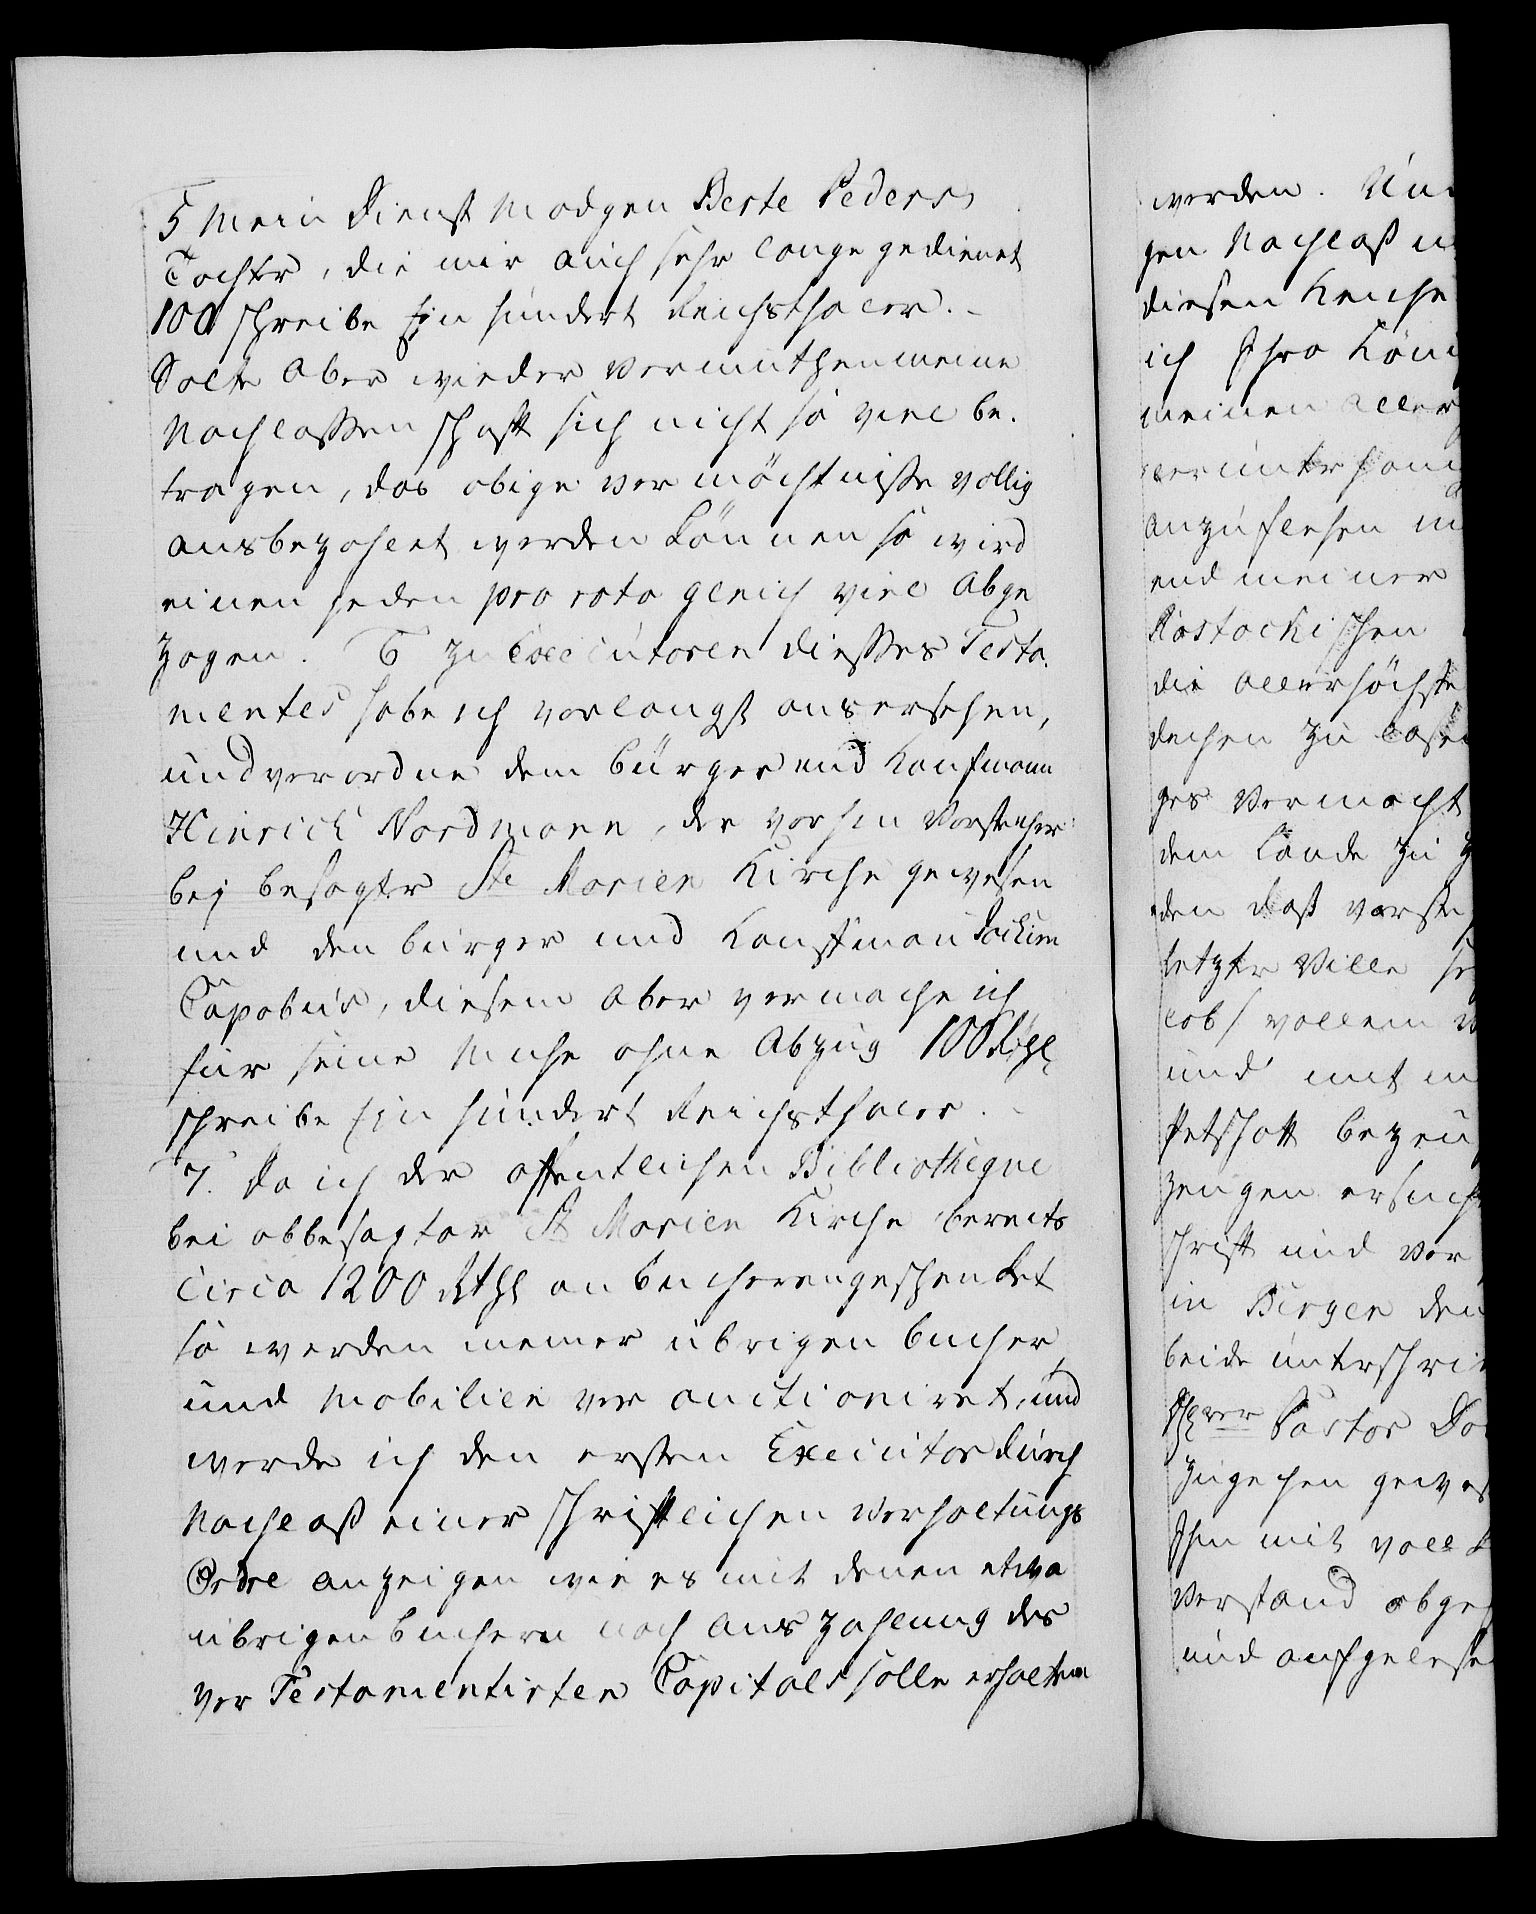 5 Mein Dienst Madgen Berte Peders
Tochter, die mir auch sehr lange gedienet
100 schreibe Ein hundert Reichsthaler.-
Solte aber wieder vermuthen meine
Nachlassenschafft sich nicht so viel be-
tragen, das obige vermächtnisse vollig
ausbezahlet werden können so wird
einen jeden pro rata gleich viel abge
zogen. 6 zu Executoren diesses Testa-
mentes habe ich vorlangst ausersehen,
und verordne dem bürger und Kaufmann
Hinrich Nordmann, der vorhin Vorsteher
bej besagter Ste Marien Kirche gewesen
und den burger und Kauffman Jochim
Capobus, diesem aber vermache ich
fur seine Muhe ohne Abzug 100 Rthl
schreibe Ein hundert Reichsthaler.
7. Da ich der offentlichen Bibliotheque
bei obbesagter St Marien Kirche bereits
Circa 1200 Rthl an bucheren geschenket
so werden meiner ubrigen bucher
und Mobilien ver auctioniret, und
werde ich den ersten Executor durch
Nachlaß einer schriftlichen Verhaltungs
Ordre anzeigen wie es mit denen etwa
ubrigen buchern nach Auszahlung des
ver Testamentirten Capitals solle erhalten
werden. Un
gen Nachlaß u
diesen Reiche
ich Ihro Köni
meinen aller
anzuflehen u
und meiner
Rostockischen
die allerhöchste
deihen zu lassen
ges Vermächt
dem Lande zu z
den daß vorste
letzter Wille
und mit m
Petschafft bezeu
zeugen ersuch
schrifft und ver
in Bergen den
beide unterschri
Pastor Do
zugehen gewes
Ihm mit voll k
Verstand abge
und aufgelese